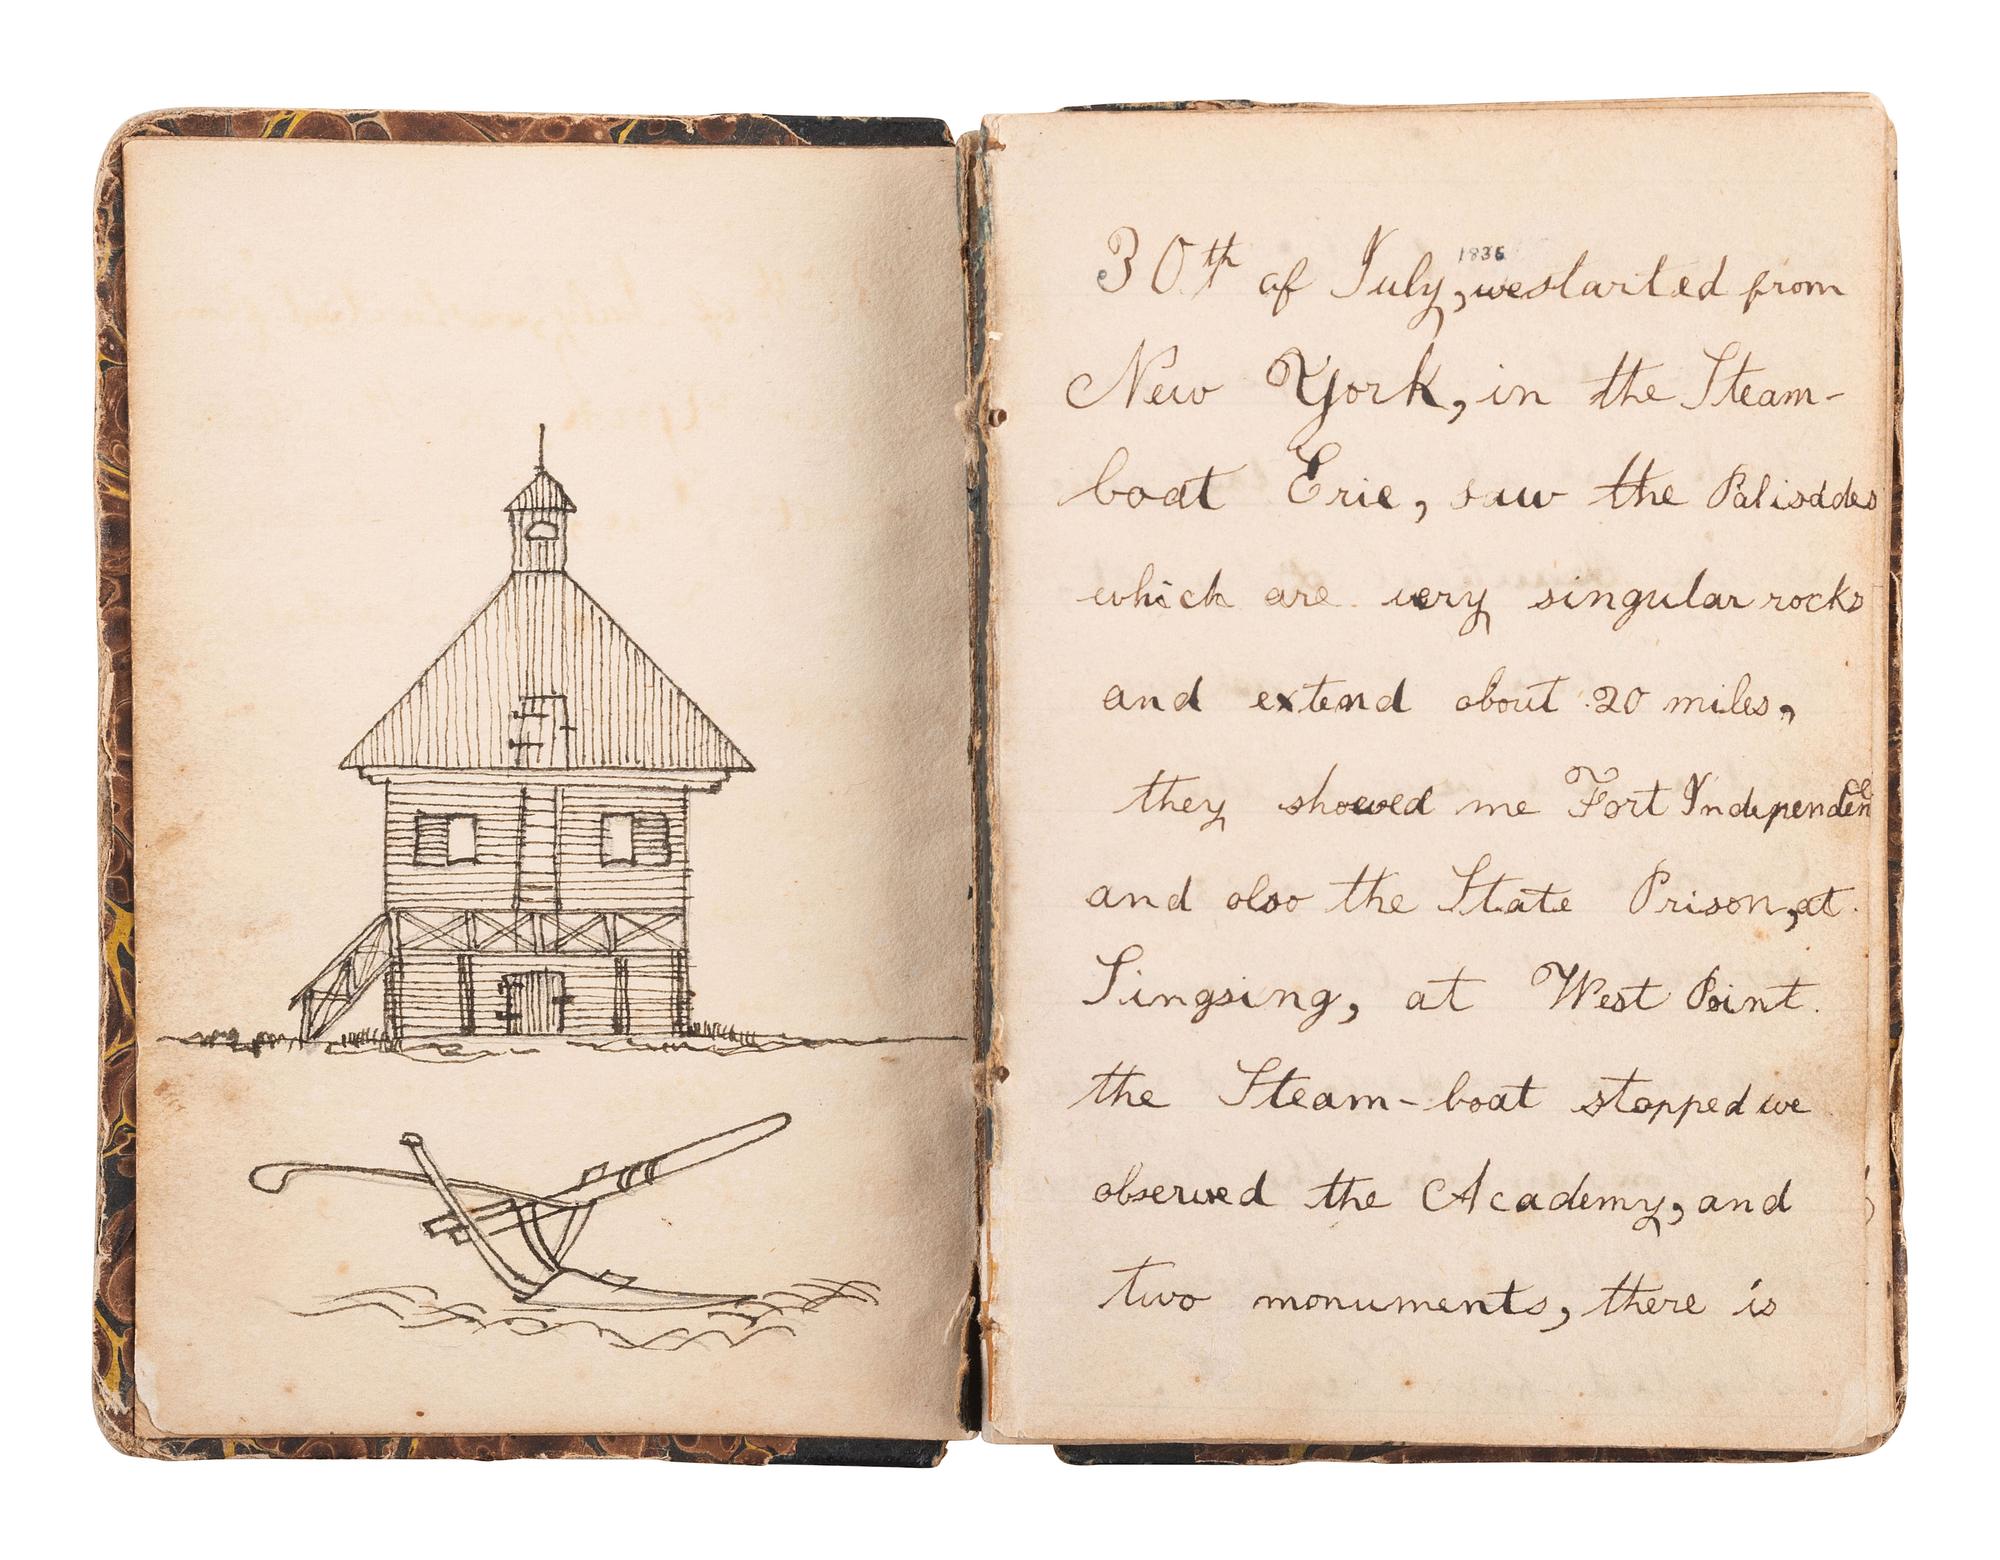 1836
30th of July, we started from
New York, in the Steam-
boat Erie, saw the Palisades
which are very singular rocks
and extend about 20 miles,
they showed me Fort Independence
and also the State Prison, at
Singsing, at West Point.
the Steam-boat stopped we
observed the Academy, and
two monuments, there is